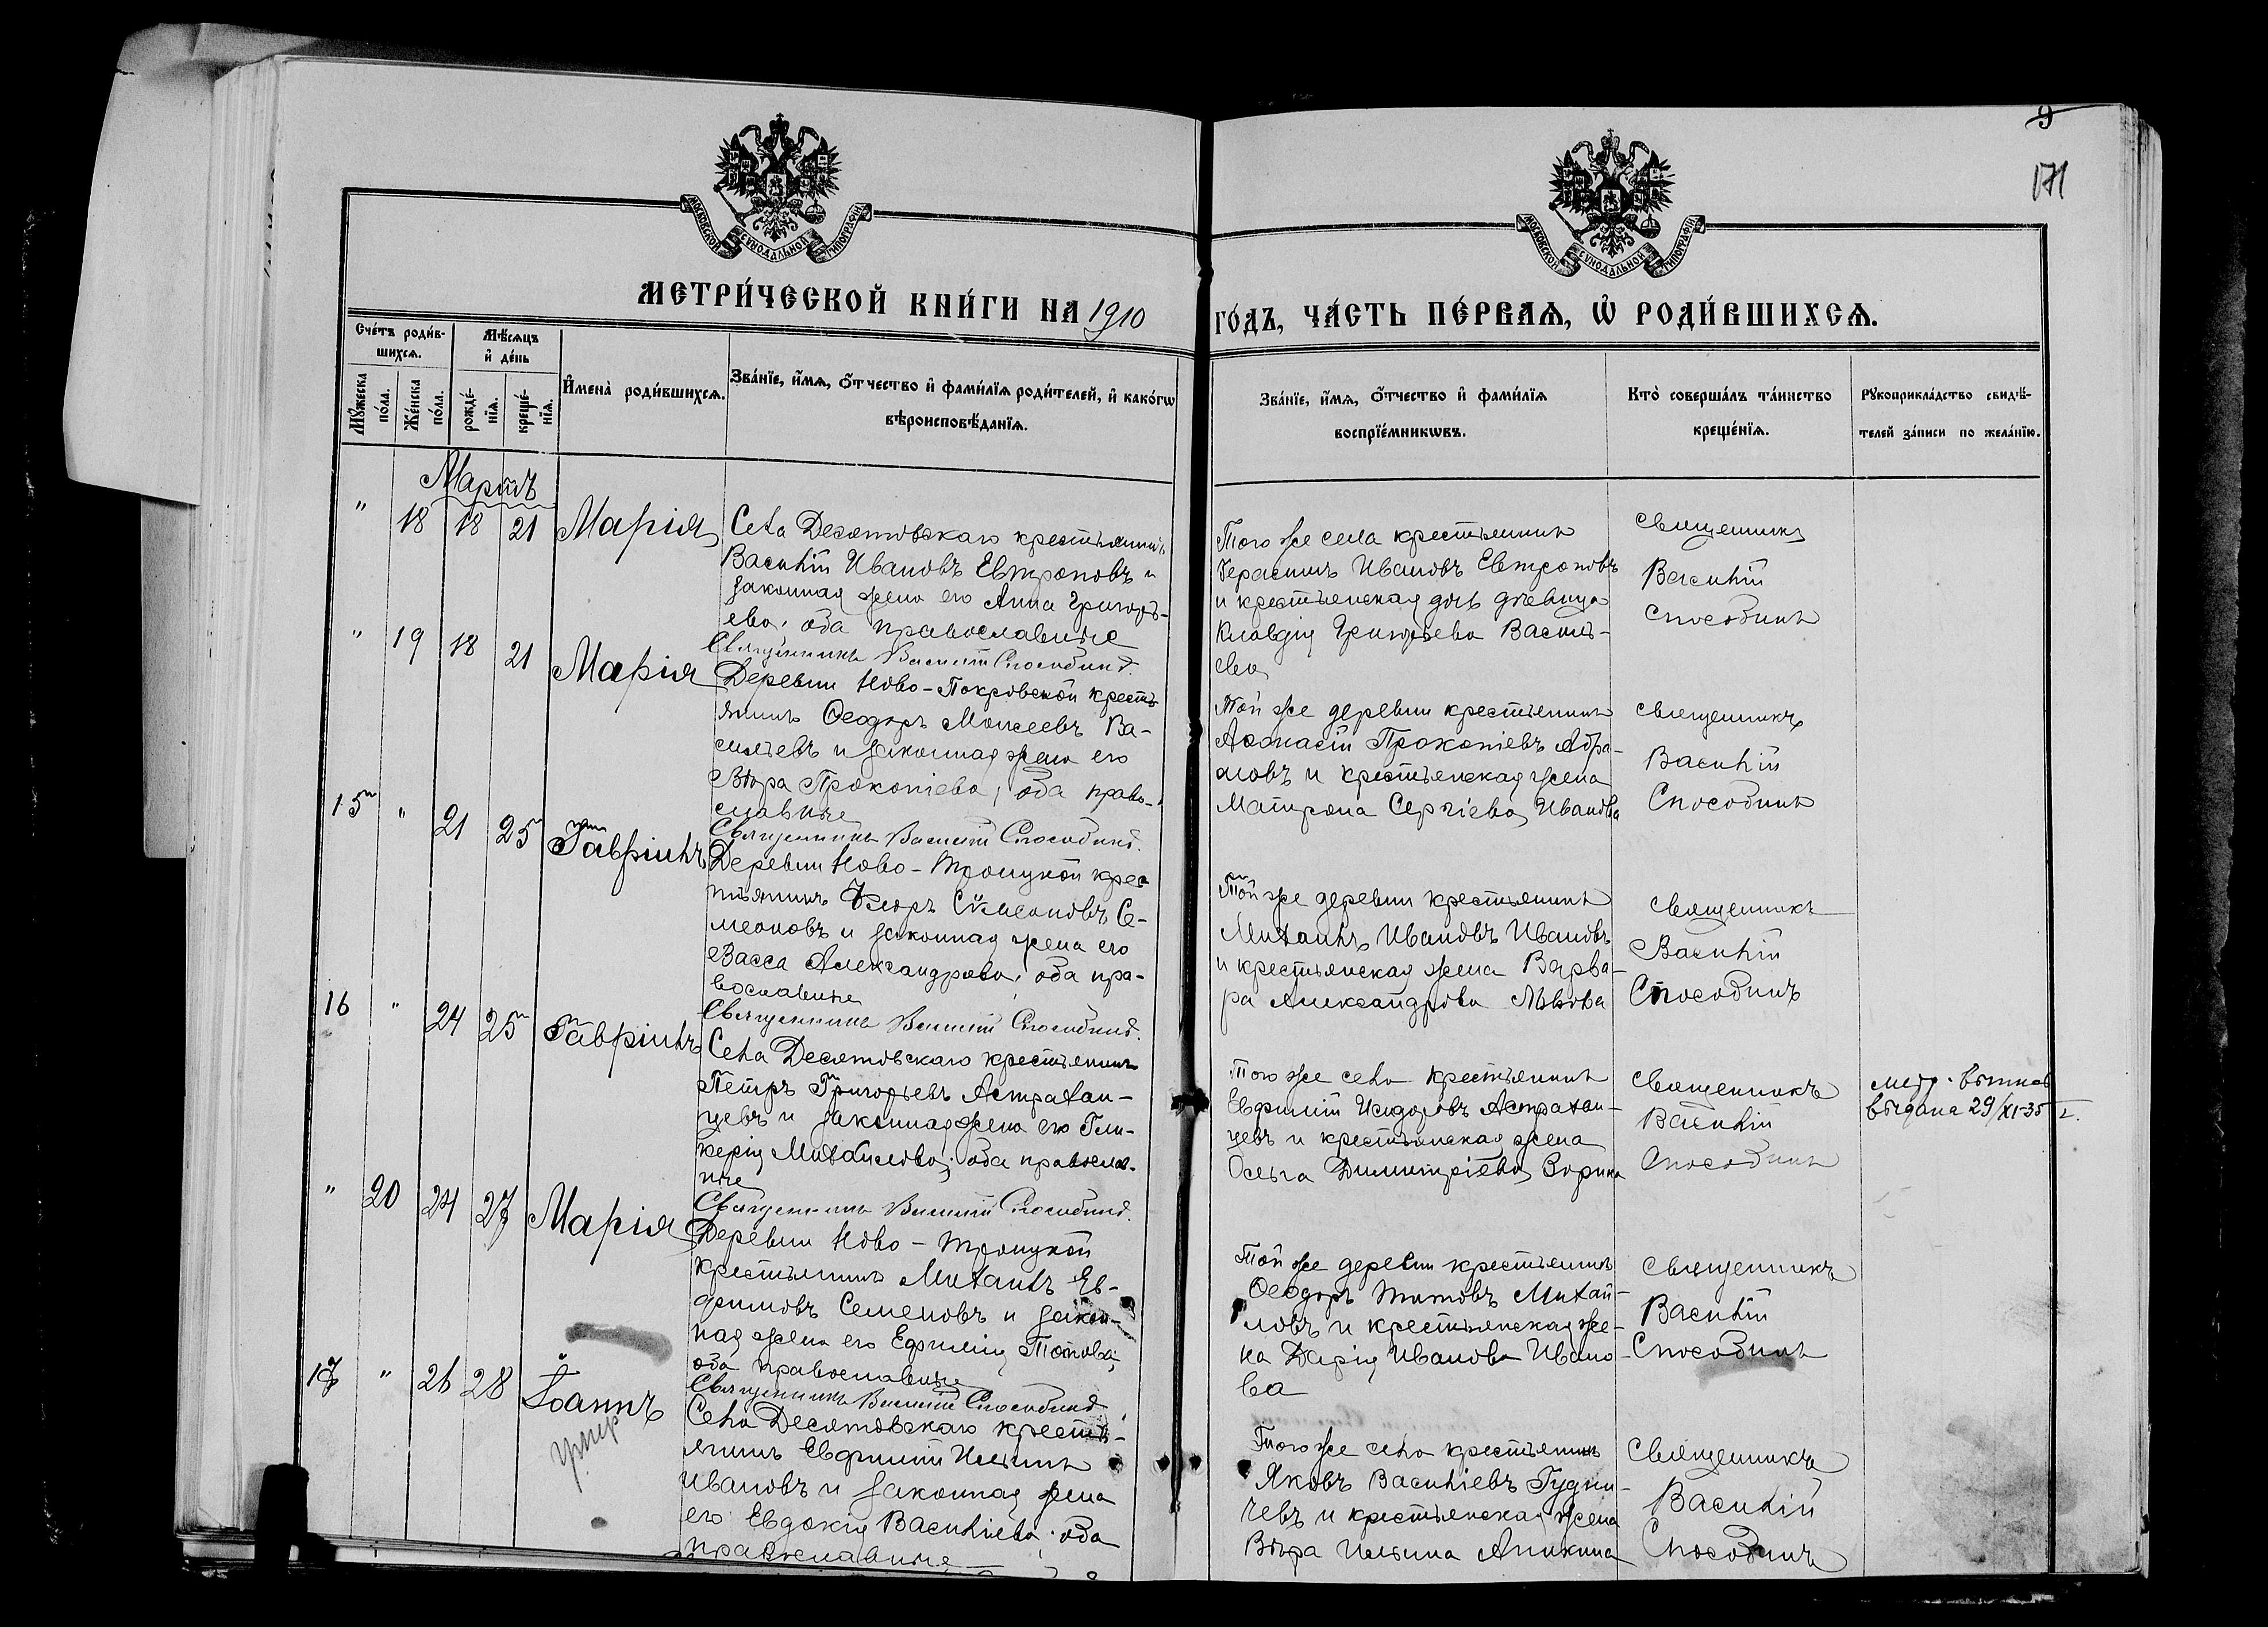 9
171
МОСКОВСКОЙ СѴНОДАЛЬНОЙ ТИПОГРАФІИ
МОСКОВСКОЙ СѴНОДАЛЬНОЙ ТИПОГРАФІИ
МЕТРИ́ЧЕСКОЙ КНИ́ГИ НА 1910 ГО́ДЪ, ЧА́СТЬ ПЕ́РВАѦ, Ѡ҆ РОДИ́ВШИХСѦ.
Сче́тъ роди́в-
шихсѧ.
Мꙋ́жеска
по́ла.
Же́нска
по́ла.
Мѣ́сѧцъ
и҆ де́нь
рожде́-
нїѧ.
креще́-
нїѧ.
И҆мена̀ роди́вшихсѧ.
Зва́нїе, и҆́мѧ, ѻ҆́тчество и҆ фами́лїѧ роди́телей, и҆ како́гѡ
вѣроисповѣ́данїѧ.
Зва́нїе, и҆́мѧ, ѻ҆́тчество и҆ фами́лїѧ
воспрїе́мникѡвъ.
Кто̀ соверша́лъ та́инство
креще́нїѧ.
Рꙋкоприкла́дство свидѣ́-
телей за́писи по жела́нїю.
Мартъ
" 18 18 21 Марія
Села Десятовскаго крестьянинъ
Василій Ивановъ Евтроповъ и
законная жена его Анна Григорь-
ева, оба православные
Священникъ Василій Способинъ.
Того же села крестьянинъ
Герасимъ Ивановъ Евтроповъ
и крестьянская дочь дѣвица
Клавдія Григорьева Василь-
ева
священникъ
Василій
Способинъ
" 19 18 21 Марія
Деревни Ново-Покровской кресть
янинъ Ѳеодоръ Моисеевъ Ва-
сильевъ и законная жена его
Вѣра Прокопіева, оба право-
славные
Священникъ Василій Способинъ.
Той же деревни крестьянинъ
Аѳонасій Прокопіевъ Абра-
мовъ и крестьянская жена
Матрона Сергіева Иванова
священникъ
Василій
Способинъ
15 " 21 25 Гавріилъ
Деревни Ново-Троицкой крес
тьянинъ Ѳлоръ Сѵмеоновъ Се-
меновъ и законная жена его
Васса Александрова, оба пра-
вославные
Священникъ Василій Способинъ.
Той же деревни крестьянинъ
Михаилъ Ивановъ Ивановъ
и крестьянская жена Варва-
ра Александрова Львова
священникъ
Василій
Способинъ
16 " 24 25 Гавріилъ
Села Десятовскаго крестьянинъ
Петръ Григорьевъ Астрахан-
цевъ и законная жена его Гли-
керія Михайлова, оба православ-
ные
Священникъ Василій Способинъ.
Того же села крестьянинъ
Евфимій Исидоровъ Астрахан-
цевъ и крестьянская жена
Ольга Димитріева Зорина
священникъ
Василій
Способинъ
выдана 29/XI-35 г.
" 20 24 27 Марія
Деревни Ново-Троицкой
крестьянинъ Михаилъ Ев-
фимовъ Семеновъ и закон-
ная жена его Ефимія Титова,
оба православные
Священникъ Василій Способинъ
Той же деревни крестьянинъ
Ѳеодоръ Титовъ Михай-
ловъ и крестьянская же-
на Дарія Иванова Ивано-
ва
священникъ
Василій
Способинъ
17 " 26 28 Іоаннъ
умер
Села Десятовскаго кресть-
янинъ Евфимій Ильинъ
Ивановъ и законная жена
его Евдокія Василіева, оба
православные
Того же села крестьянинъ
Яковъ Василіевъ Гудки-
чевъ и крестьянская жена
Вѣра Ильина Аникина
Священникъ
Василій
Способинъ